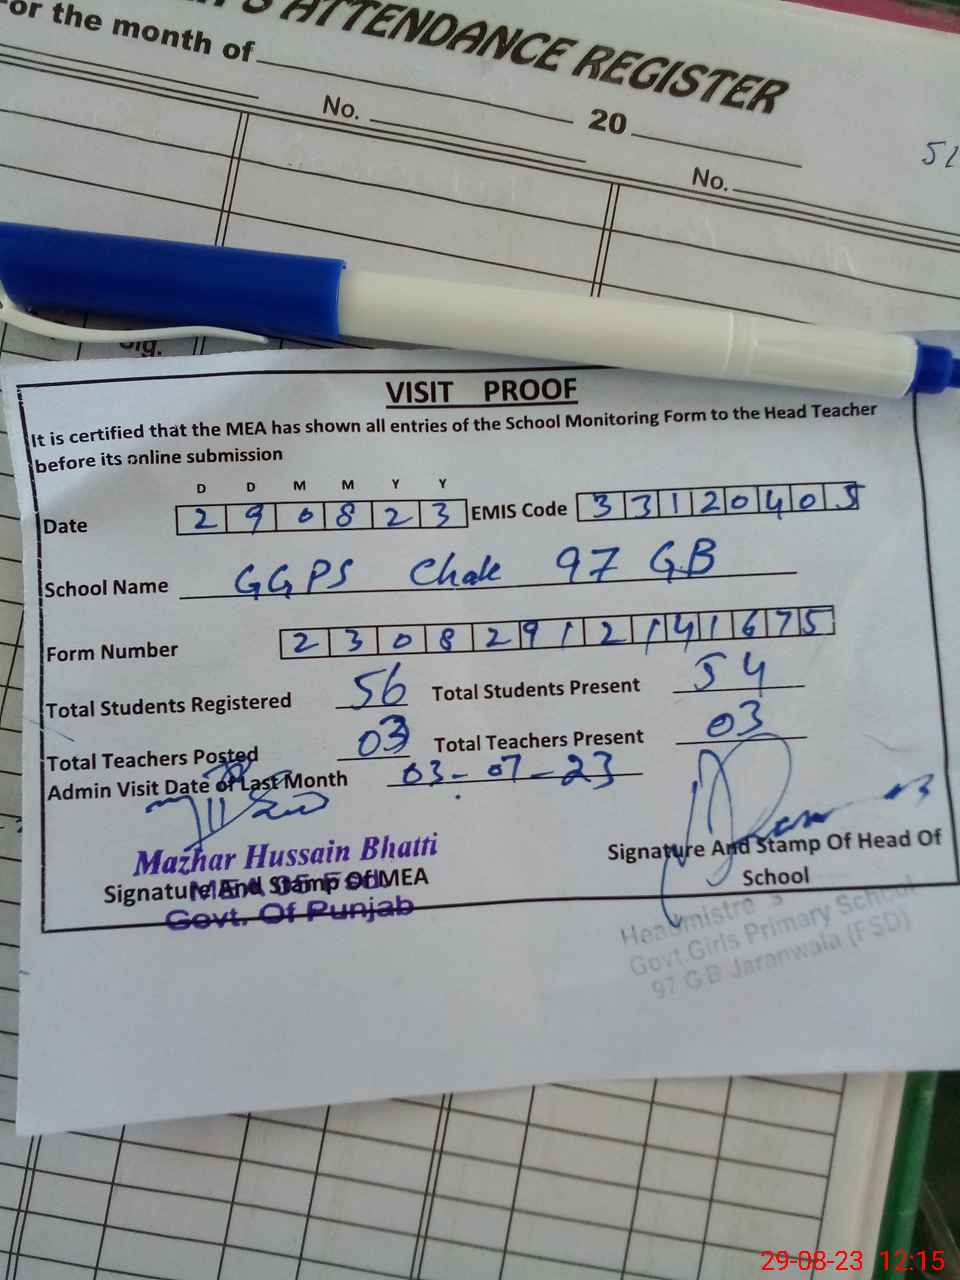 'S ATTENDANCE REGISTER
For the month of
No. 20
No.
Sig.
VISIT PROOF
It is certified that the MEA has shown all entries of the School Monitoring Form to the Head Teacher
before its online submission
D D M M Y Y
Date 2 9 0 8 2 3 EMIS Code 3 3 1 2 0 4 0 5
School Name GGPS Chak 97 GB
Form Number 2 3 0 8 2 9 1 2 1 4 1 6 7 5
Total Students Registered 56 Total Students Present 54
Total Teachers Posted 03 Total Teachers Present 03
Admin Visit Date of Last Month 03-07-23
Mazhar Hussain Bhatti
Signature And Stamp Of MEA
Govt. Of Punjab
Signature And Stamp Of Head Of
School
Headmistress
Govt.Girls Primary School
97 G.B Jaranwala (FSD)
29-08-23 12:15